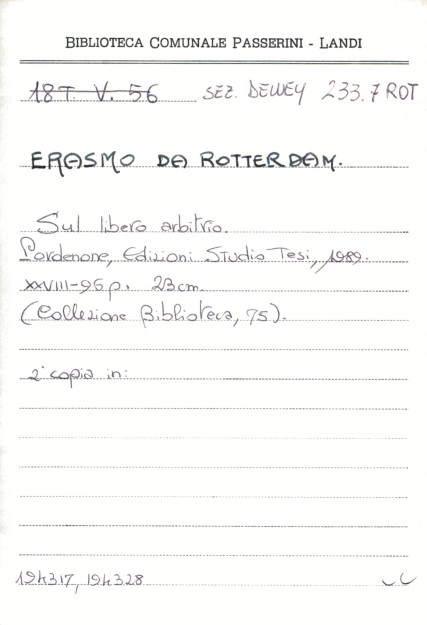 BIBLIOTECA COMUNALE PASSERINI - LANDI
18T. V. 56 SEZ. DEWEY 233.7 ROT
ERASMO DA ROTTERDAM.
Sul libero arbitrio.
Pordenone, Edizioni Studio Tesi, 1989.
XXVIII-96 p. 23 cm.
(Collezione Biblioteca, 75).
2ª copia in:
194317, 194328